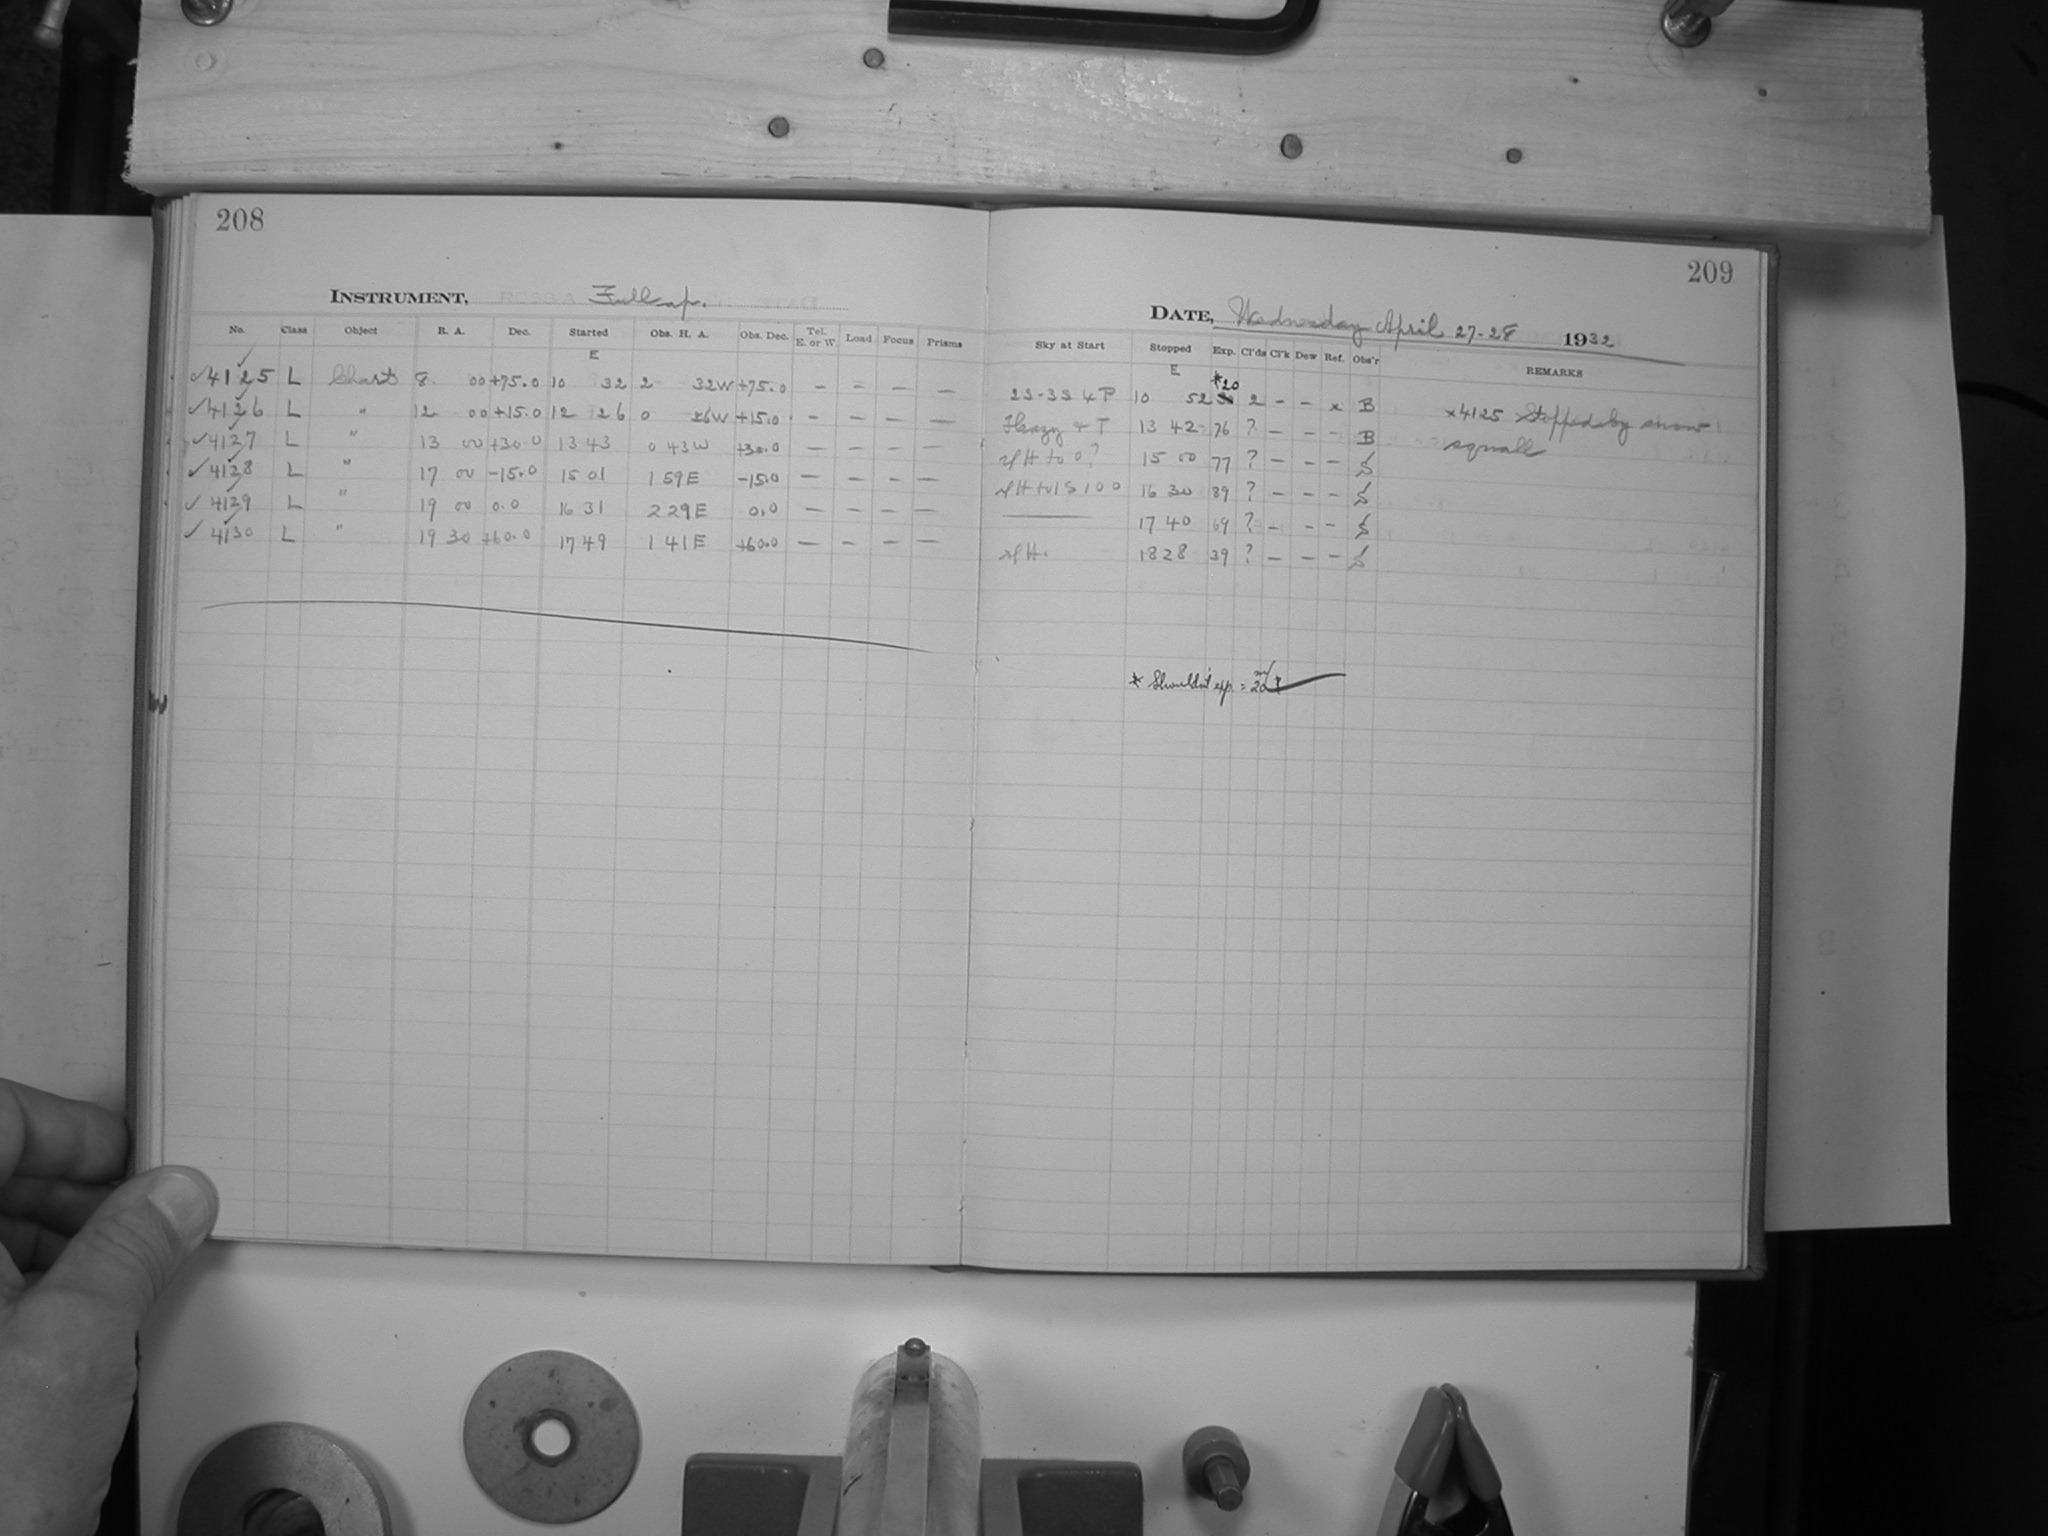 208
INSTRUMENT, Full ap.
No. Class Object R. A. Dec. Started Obs. H. A. Obs. Dec. Tel. E. or W. Load Focus Prisms
E
✓4125 L Chart 8 00 +75.0 10 32 2 32W +75.0 – = – –
✓4126 L " 12 00 +15.0 12 26 0 26W +15.0 – – – –
✓4127 L " 13 00 +30.0 13 43 0 43W +30.0 – – – –
✓4128 L " 17 00 -15.0 15 01 1 59E -15.0 – – – –
✓4129 L " 19 00 0.0 16 31 2 29E 0.0 – – – –
✓4130 L " 19 30 +60.0 17 49 1 41E +60.0 – – – –
209
DATE, Wednesday April 27-28 1932
Sky at Start Stopped Exp. Cl'ds Cl'k Dew Ref. Obs'r REMARKS
E
*20
10 52 2 – – x B x4125 Stopped by snow
13 42 76 ? – – – B squall
15 00 77 ? – – –
16 30 89 ? – – –
17 40 69 ? – – –
18 28 39 ? – – –
* Shouldn't exp. = 20 ?